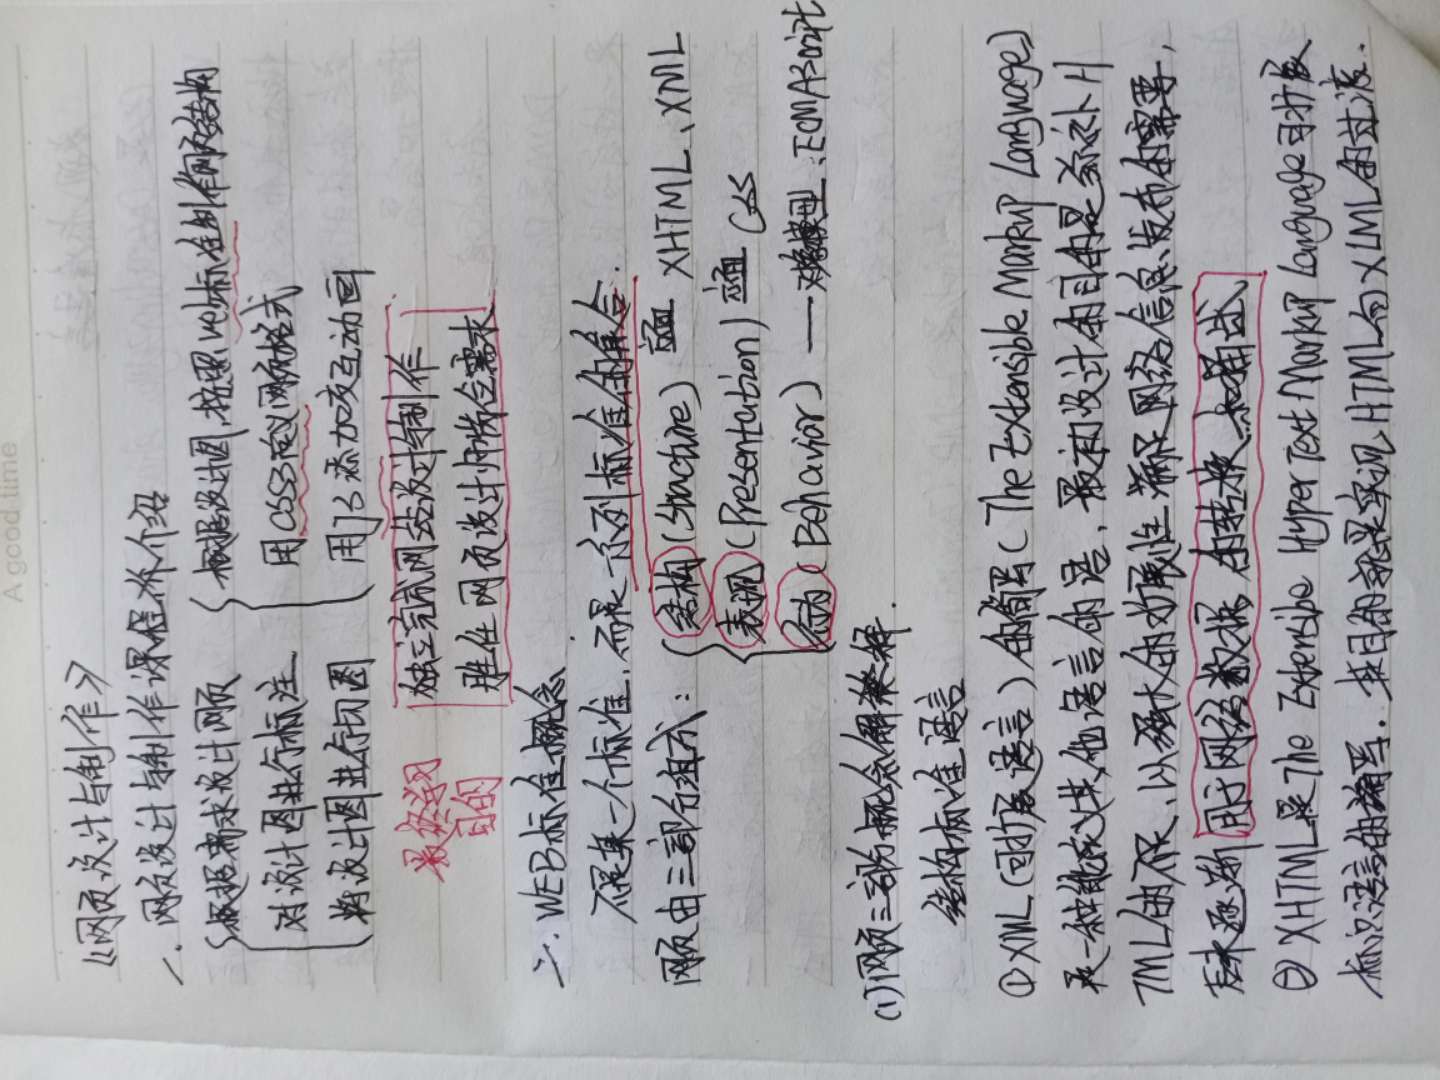 A good time
《网页设计与制作》
一.网页设计与制作课程介绍
根据需求设计网页
对设计图进行标注
对设计图进行切图
根据设计图,按照W3C标准制作网页结构
用CSS3定义网页格式
用JS添加交互动画
最终学习目的
独立完成网站设计与制作
胜任网页设计师岗位需求
二.WEB标准概念
不是某一个标准,而是一系列标准的集合.
网页由三部分组成:
结构(Structure) 涵盖 XHTML、XML
表现(Presentation) 涵盖 CSS
行为(Behavior) — 对象模型:ECMAScript
(1)网页三部份概念解释.
结构标准语言
①XML(可扩展语言)的简写(The Extensible Markup Language)
是一种能定义其他语言的语,最初设计的目的是弥补H
TML的不足,以强大的扩展性满足网络信息发布的需要,
后来逐渐用于网络数据的转换和描述.
②XHTML是The Extensibe HyperText Markup Language可扩展
标识语言的缩写.其目的就是实现HTML向XLML的过渡.